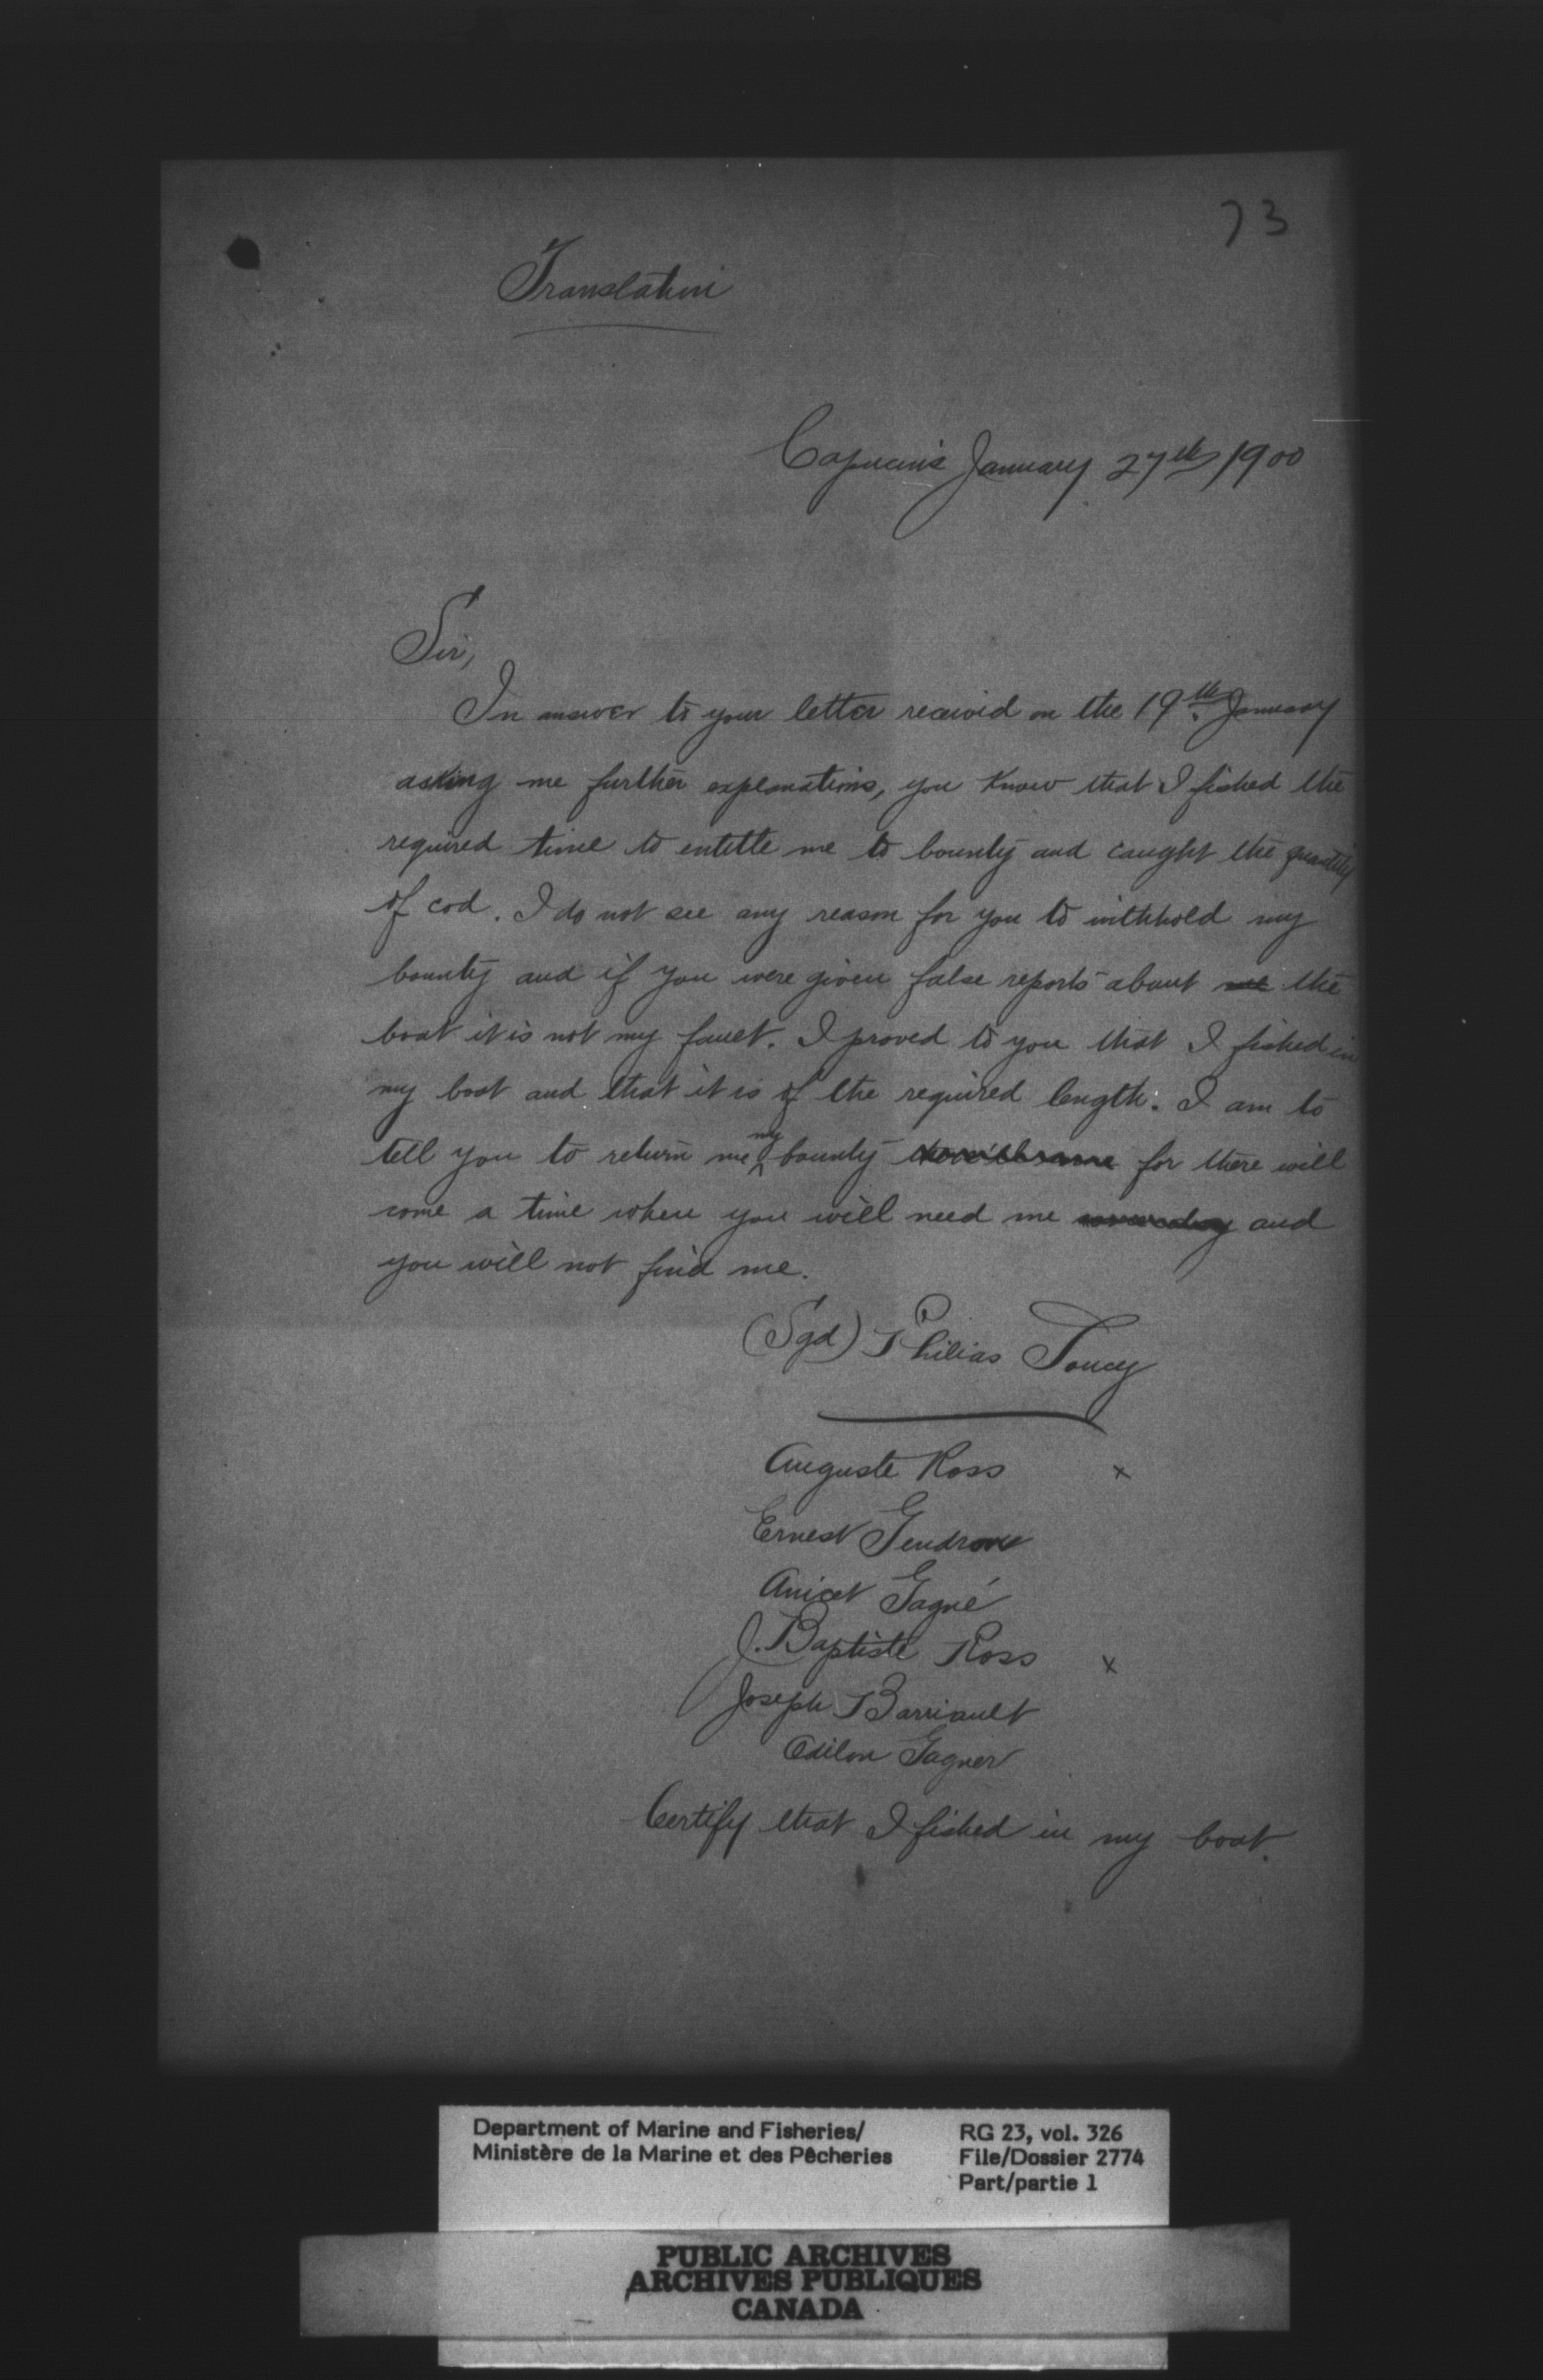 73
Translation
Capucins January 27th 1900
Sir,
In answer to your letter receivid on the 19th. January
asking me further explanations, you know that I fished the
required time to entitle me to bounty and caught the quantity
of cod. I do not see any reason for you to withhold my
bounty and if you were given false reports about me the
boat it is not my fault. I proved to you that I fished in
my boat and that it is of the required length. I am to
tell you to return me my bounty for there will
come a time when you will need me and
you will not find me.
(Sgd) Philias Toucy
Auguste Ross x
Ernest Gendron
Anicet Gagné
J. Baptiste Ross x
Joseph Barriault
Odilon Gagner
Certify that I fished in my boat.
Department of Marine and Fisheries/
Ministère de la Marine et des Pêcheries
RG 23, vol. 326
File/Dossier 2774
Part/partie 1
PUBLIC ARCHIVES
ARCHIVES PUBLIQUES
CANADA